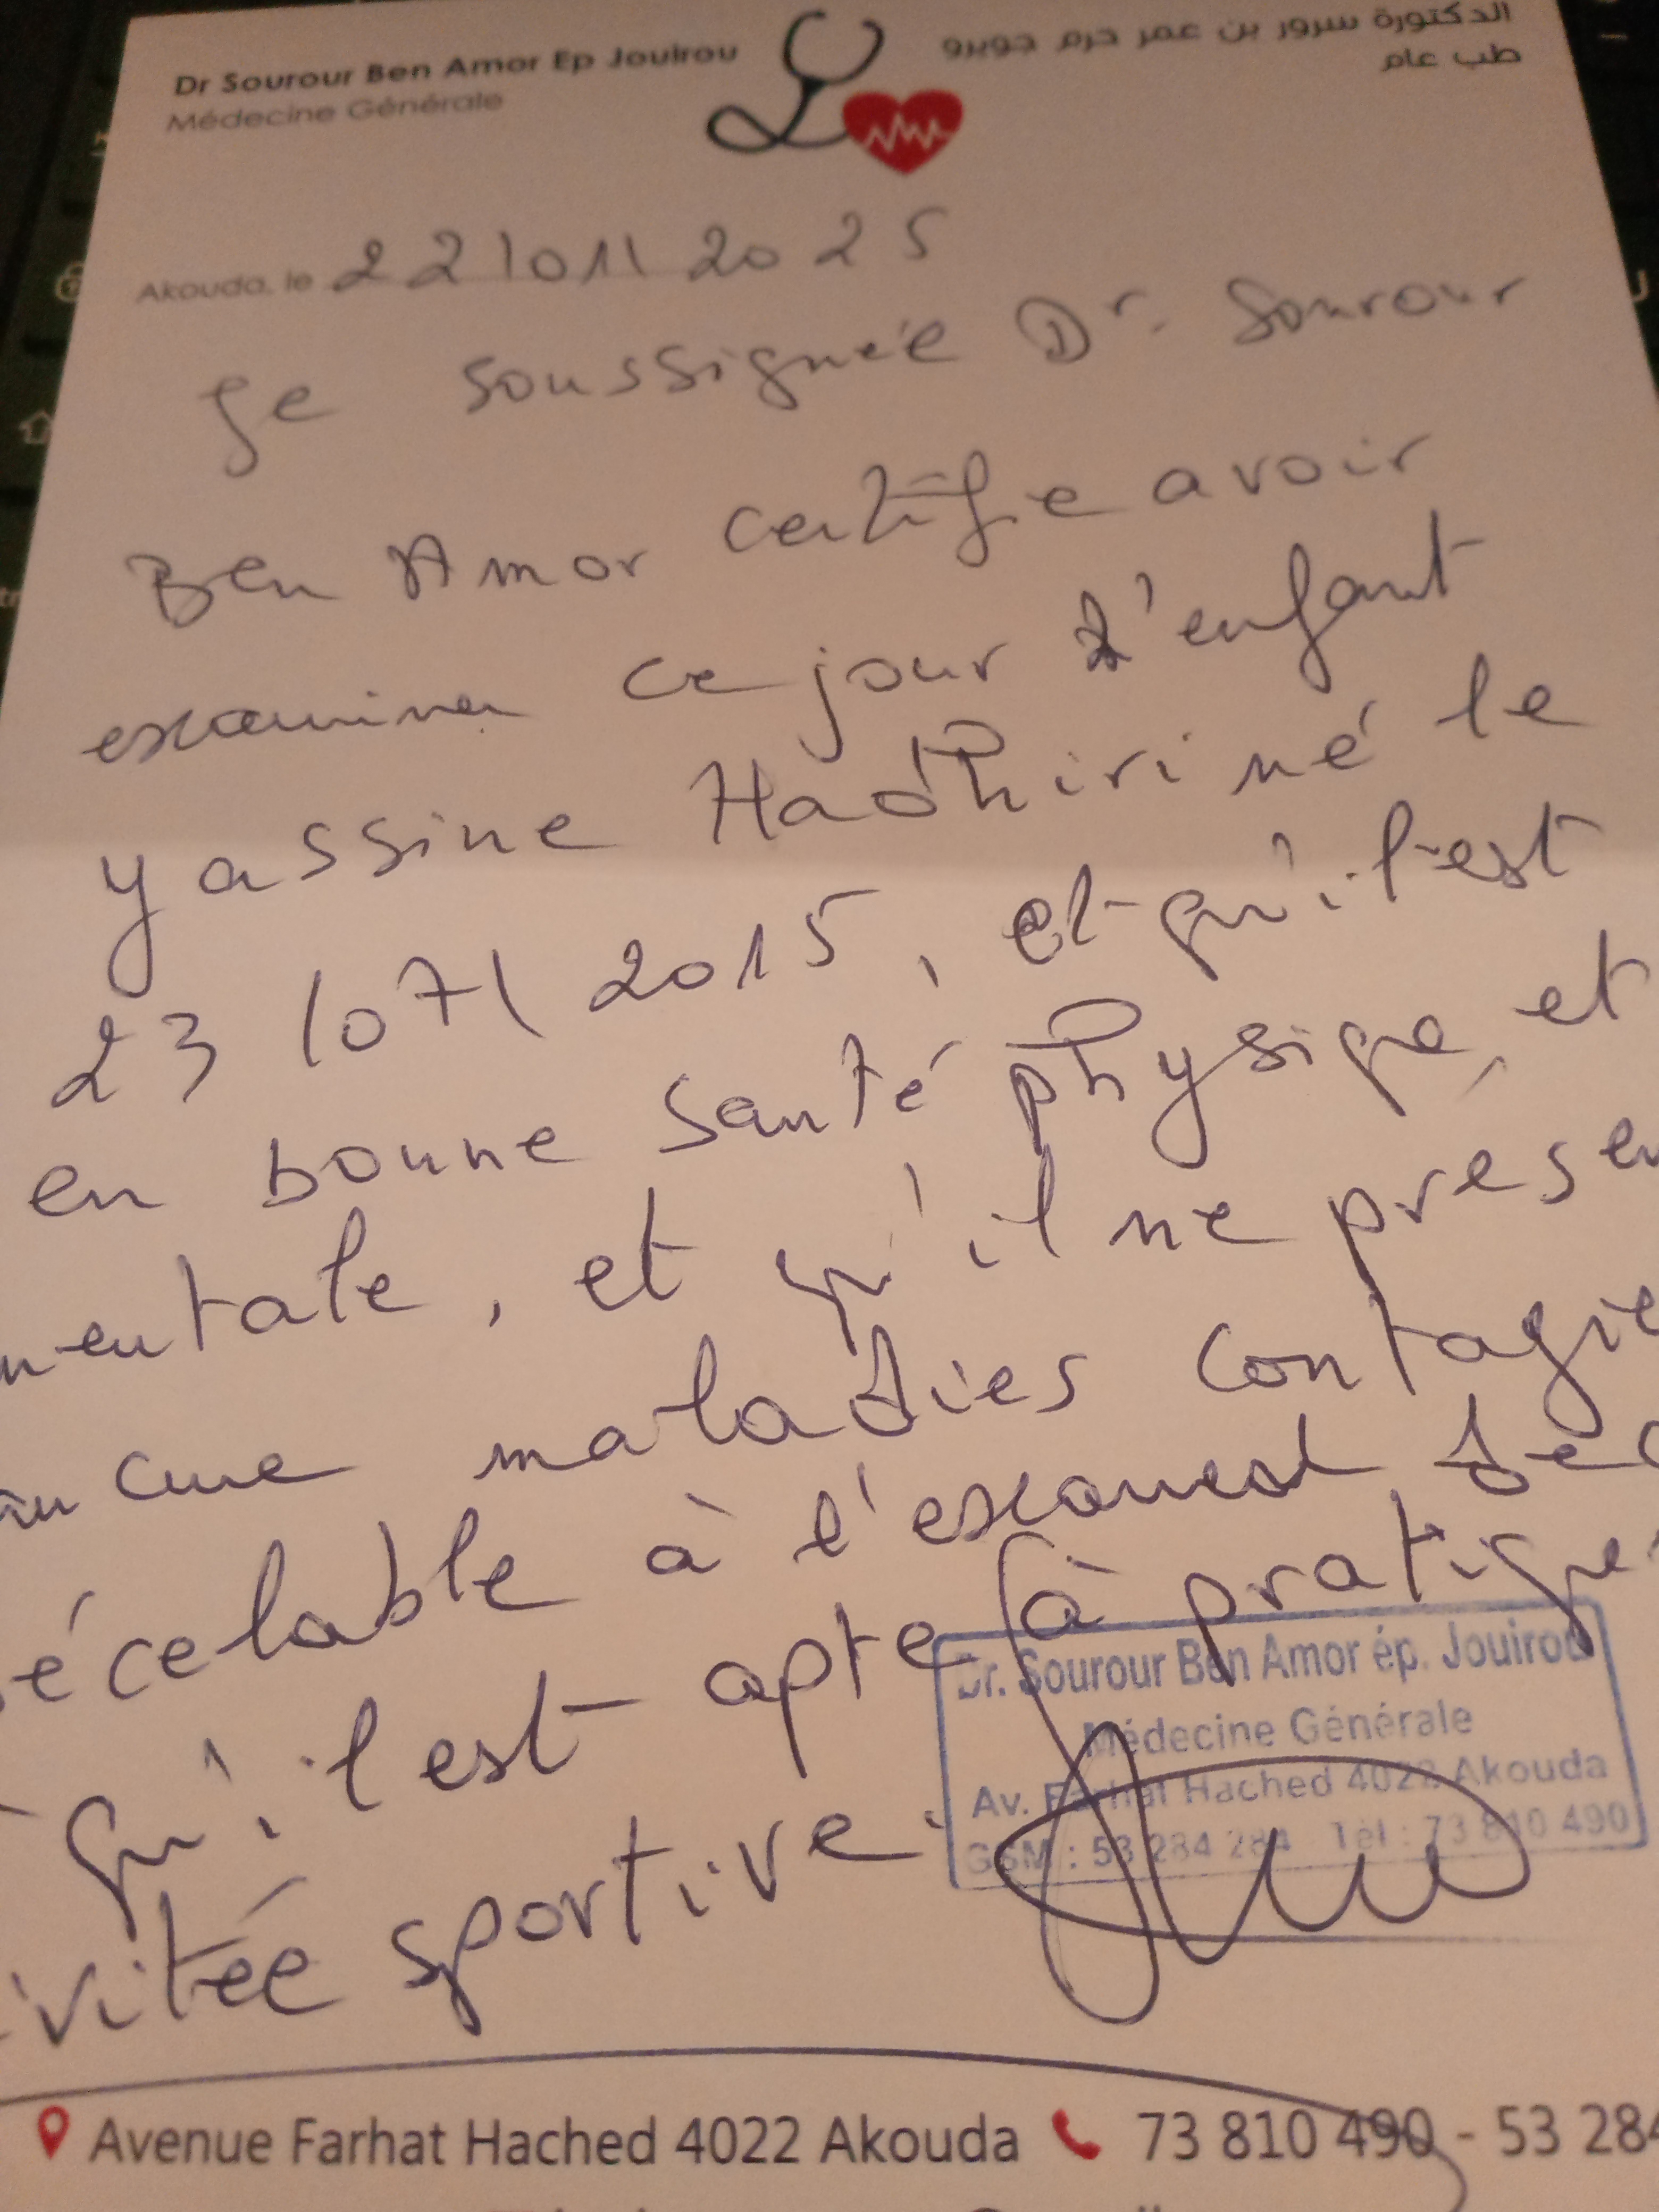 Dr Sourour Ben Amor Ep Jouirou
Médecine Générale
الدكتورة سرور بن عمر حرم جويرو
طب عام
Akouda, le 22/01/2025
Je soussignée Dr. Sourour
Ben Amor certifie avoir
examiner ce jour l'enfant
yassine Hadhiri né le
23/07/2015, et qu'il est
en bonne santé physique, et
mentale, et qu'il ne presen
aucune maladies contagie
écelable à l'examen de c
qu'il est apte à pratique
ivitée sportive.
Dr. Sourour Ben Amor ép. Jouirou
Médecine Générale
Av. Farhat Hached 4022 Akouda
GSM : 53 284 284 Tél : 73 810 490
Avenue Farhat Hached 4022 Akouda 73 810 490 - 53 284